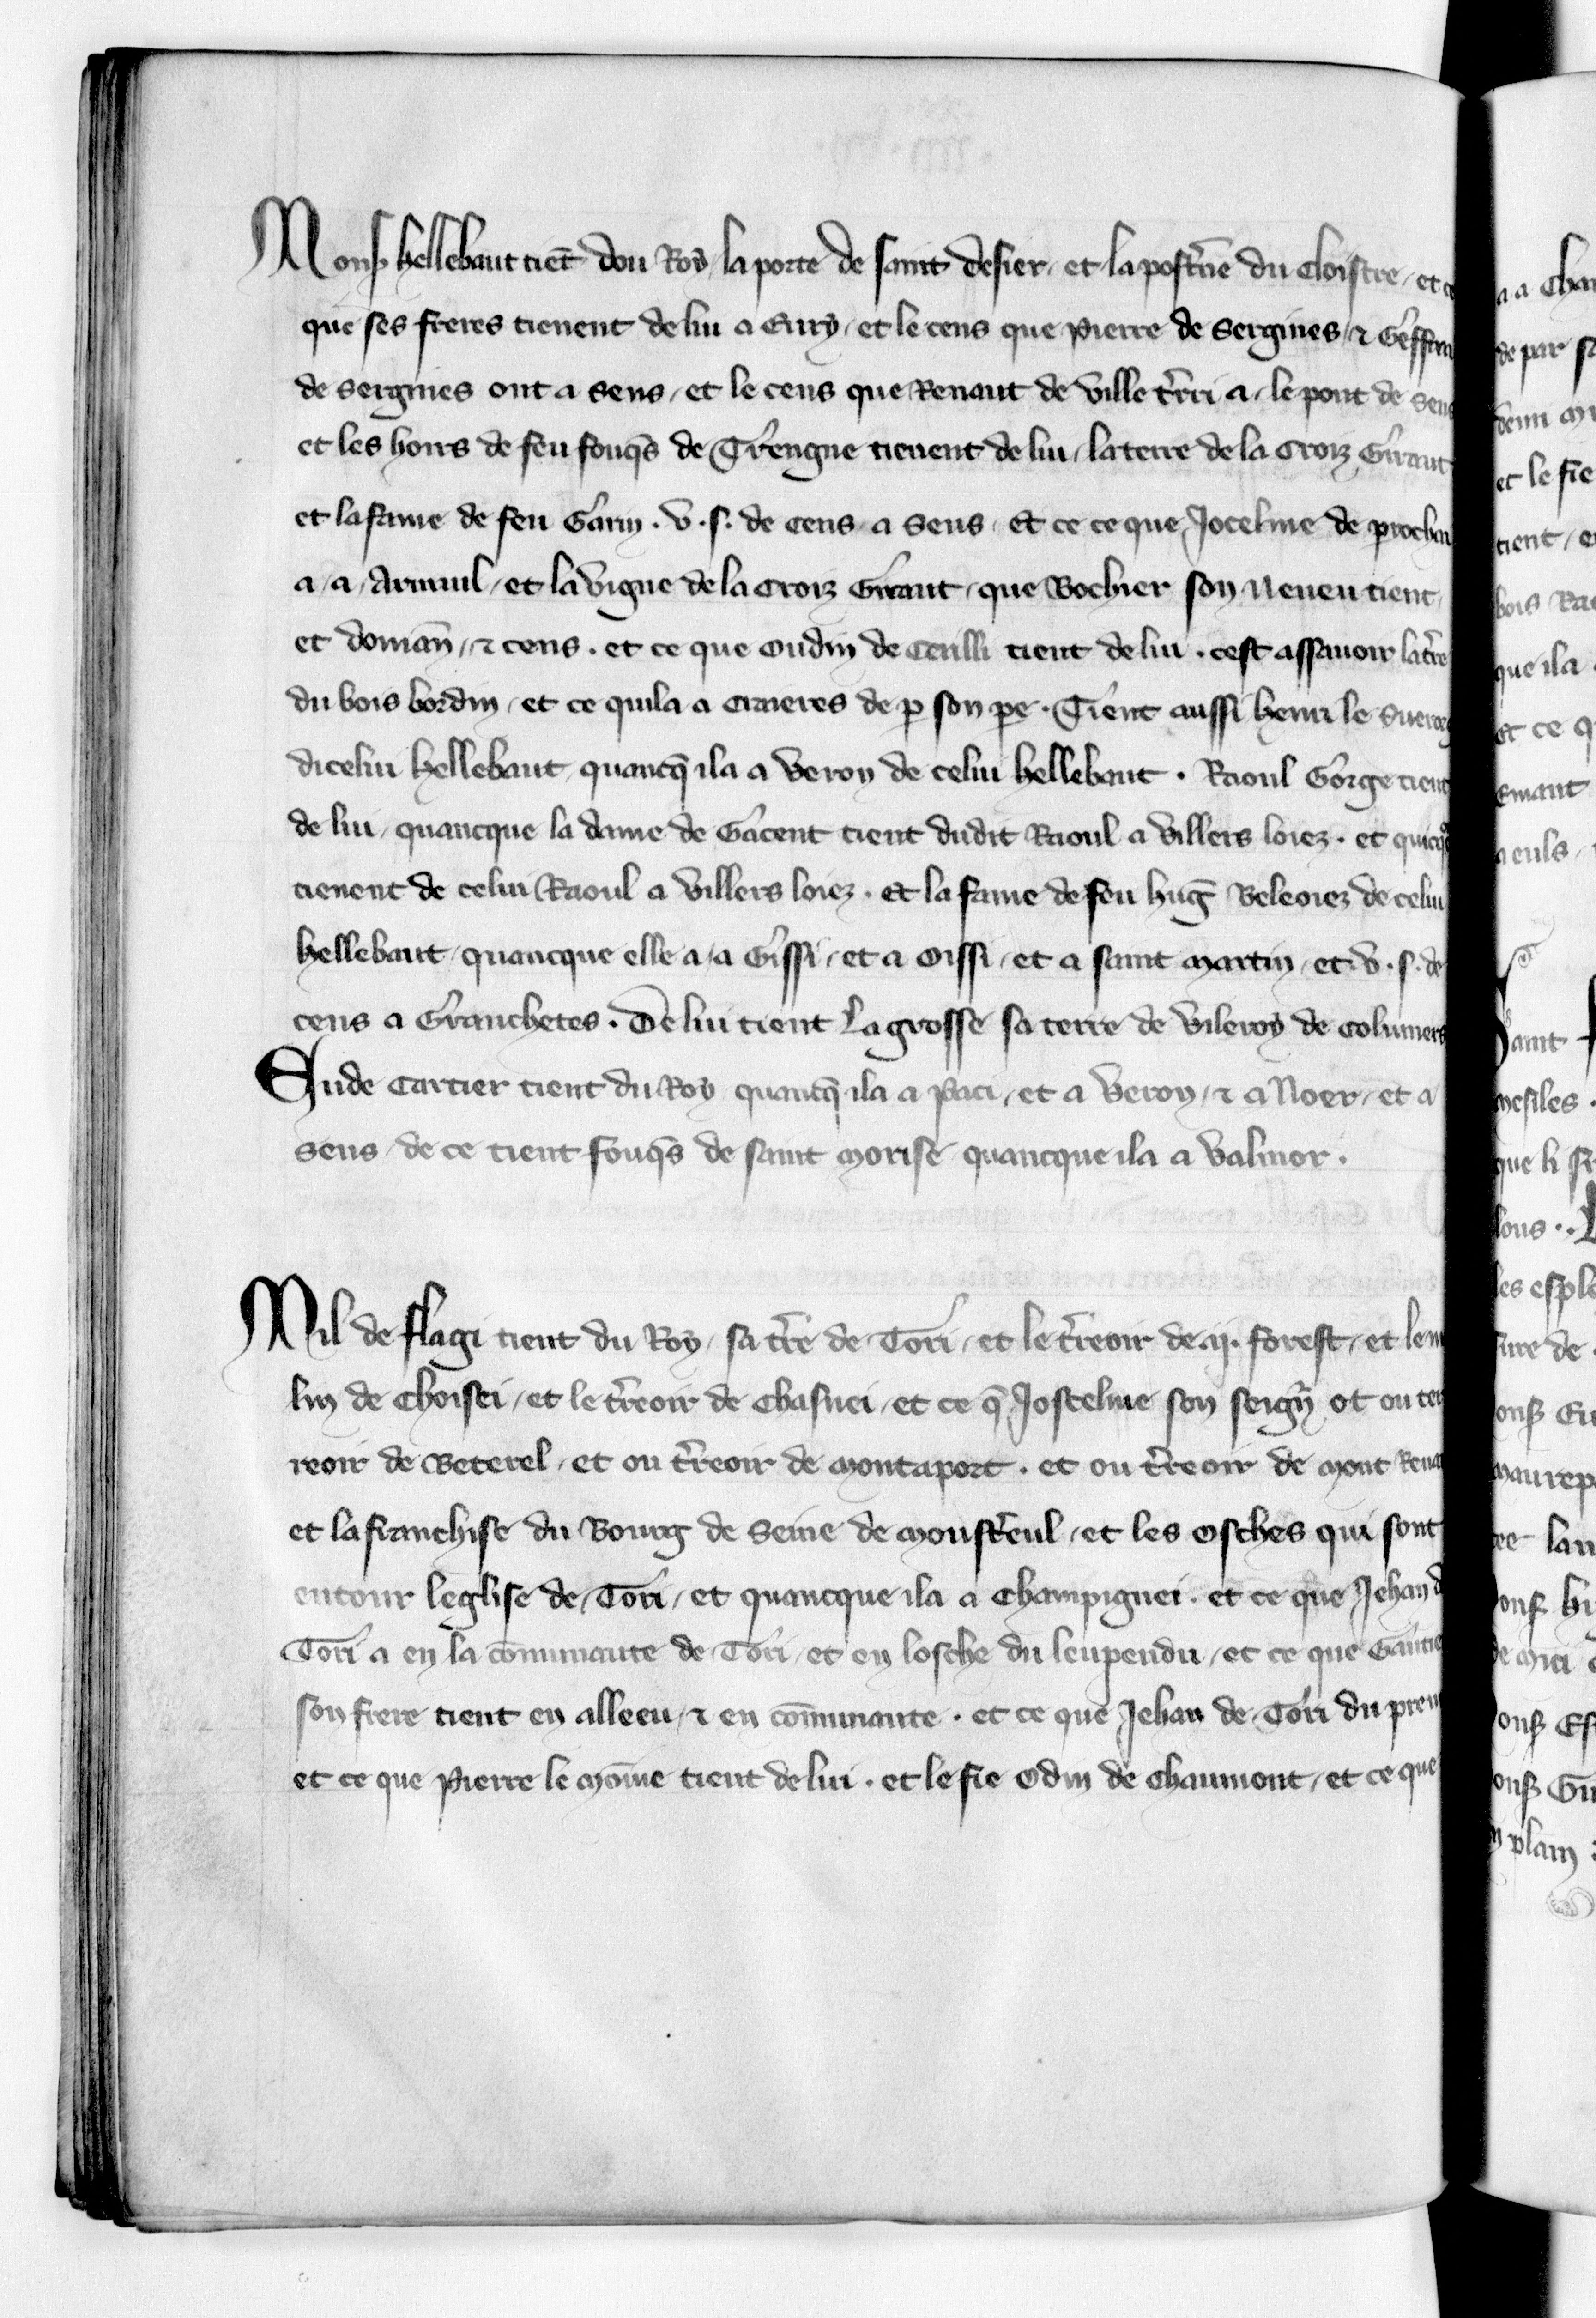 Mons hellebaut tiēt dou Roy / la porte de saint desier / et la posťne du Cloistre / et ce
que ses freres tienent de lui a Eury / et le cens que pierre de sergines / ⁊ Geffroi
de sergines ont a sens / et le cens que Renaut de ville t̾rri a / le pont de sens
et les hoirs de feu fouqs̄ de Trengne tienent de lui / la terre de la Croiz Giraut
et la fame de feu Garin . v . s . de cens a sens / et ce ce que Joceline de prochen
a / a / Armul / et la vigne de la croiz Giraut / que Bochier son neueu tient /
et domaın̄ / ⁊ cens . et ce que oudin de Cerilli tient de lui . cest assauoir la t̾re
du bois bordin / et ce quila a cirieres de p son pe . Tient aussi henri le suerorg
dicelui hellebaut quancq̄ ila a veron de celui hellebaut . Raoul Gorge tient
de lui / quancque la dame de Gacent tient dudit Raoul a villers loiez . et quicq̄
tienent de celui Raoul a villers loiez . et la fame de feu huḡ Beleoiez de celui
hellebaut / quancque elle a / a Gissi / et a oissi / et a saint martin / et . v . s . de
cens a Granchetes . De lui tient Lagrosse sa terre de vileroy de colummers
Eude Cartier tient du Roy quancq̄ ila a paci / et a veron / ⁊ a Noer / et a
sens / de ce tient fouqs̄ de saint morise quancque ila a valmor .
Mil de flagi tient du Roy / sa t̾re de Tori / et le t̾reoir de .ij. forest / et le m
lin de Choisei / et le t̾reoir de Chasnei / et ce q̄ Josceline son seigr̄ ot ou ter
reoir de Beterel / et ou t̾reoir de montaport . et ou t̾reoir de mont Renar
et la franchise du Bourg de seine de moust̾eul / et les osches qui sont
entour leglise de Tori / et quancque ila a Champignei . et ce que Jehan d
Tori a en la cōmunaute de Tori / et en losche du leupendu / et ce que Gautie
son frere tient en alleeu / ⁊ en cōmunaute . et ce que Jehan de Tori du prem
et ce que pierre le mōine tient de lui . et le fie odin de Chaumont / et ce que